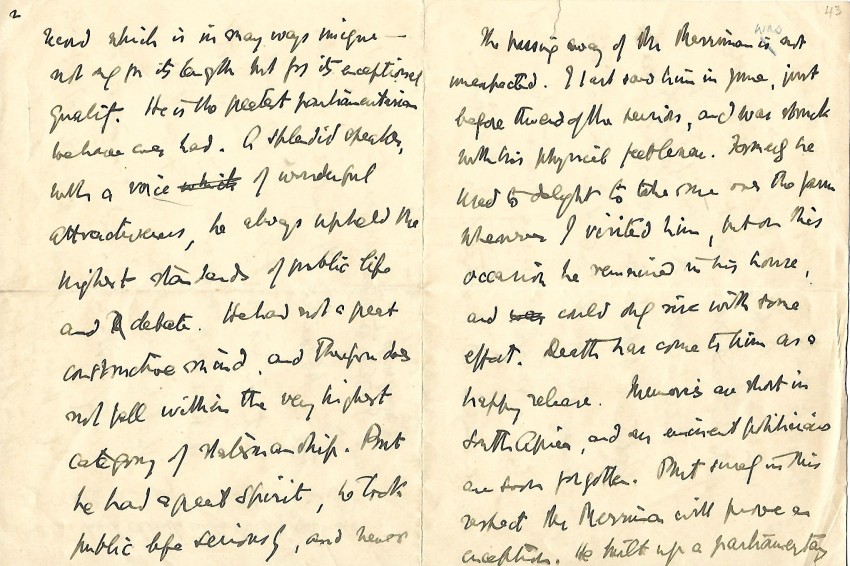 2
record which is in many ways unique —
not only for its length but for its exceptional
quality. He is the greatest parliamentarian
we have ever had. A splendid speaker,
with a voice which of wonderful
attractiveness, he always upheld the
highest standards of public life
and debate. He had not a great
constructive mind, and therefore does
not fall within the very highest
category of statesmanship. But
he had a great spirit, he took
public life seriously, and never
43
who
The passing away of Mr Merriman is not
unexpected. I last saw him in June, just
before the end of the session, and was struck
with his physical feebleness. Formerly he
used to delight to take me over the farm
whenever I visited him, but on this
occasion he remained in his house,
and was could only rise with some
effort. Death has come to him as a
happy release. Memories are short in
South Africa, and our eminent politicians
are soon forgotten. But surely in this
respect Mr Merriman will prove an
exception. He built up a parliamentary